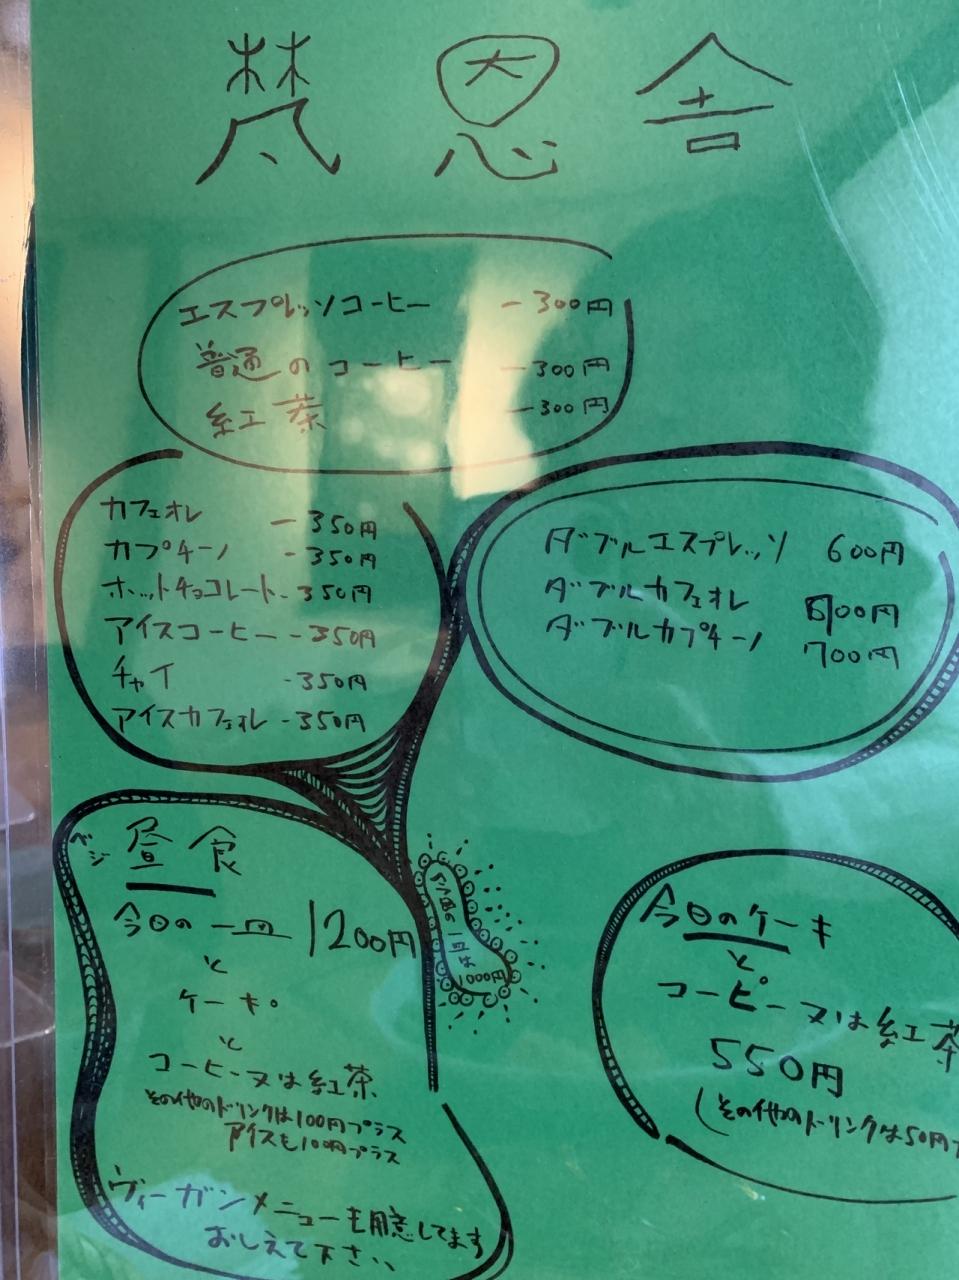 梵恩舎
エスプレッソコーヒー ー300円
普通のコーヒー ー300円
紅茶 ー300円
カフェオレ ー350円
カプチーノ -350円
ホットチョコレート-350円
アイスコーヒー-350円
チャイ -350円
アイスカフェオレ-350円
ダブルエスプレッソ 600円
ダブルカフェオレ 600円
ダブルカプチーノ 700円
ベジ 昼食
今日の一皿 1200円
と
ケーキ。
と
コーヒー又は紅茶
その他のドリンクは100円プラス
アイスも100円プラス
ヴィーガンメニューも用意してます
おしえて下さい、
今週の一皿は1000円
今日のケーキ
と
コーヒー又は紅茶
550円
(その他のドリンクは50円